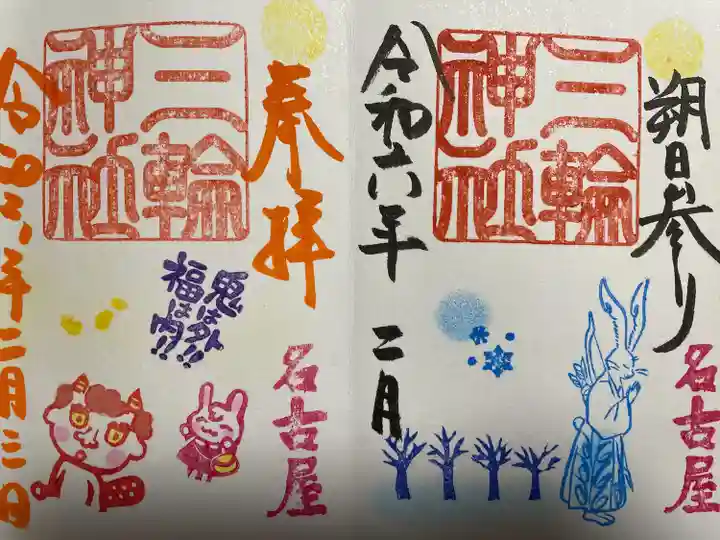 朔日参り
三輪
神社
名古屋
令和六年 二月
奉拝
三輪
神社
鬼は外!!
福は内!!
名古屋
令和六年二月三日